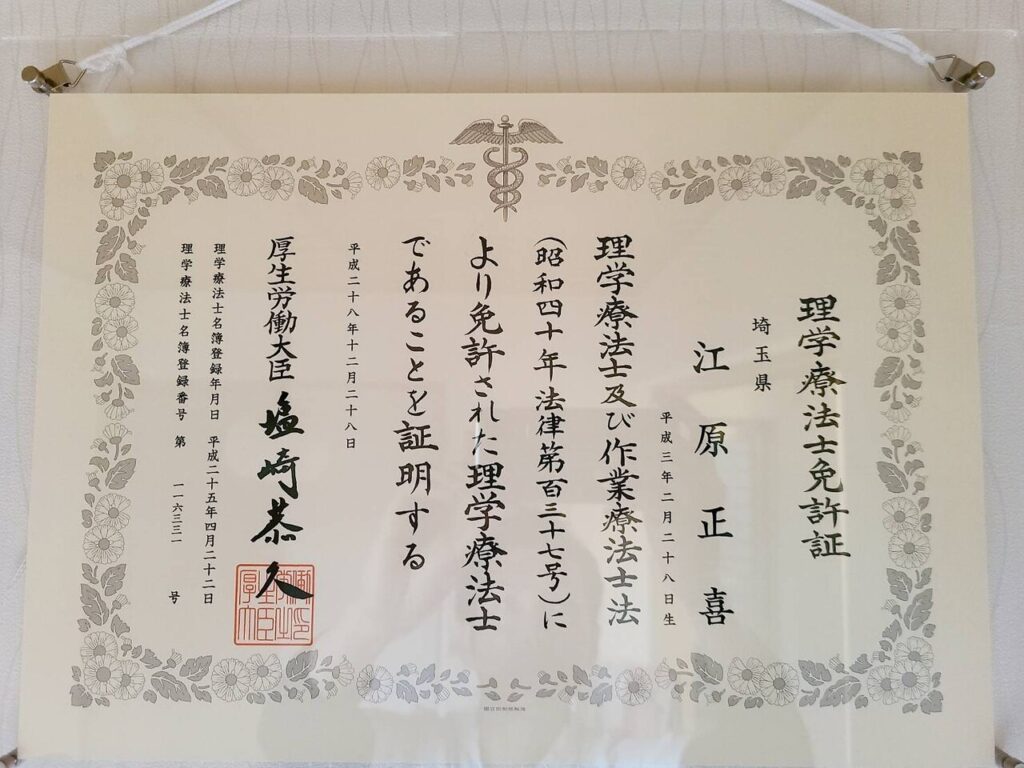 理学療法士免許証
埼玉県
江原正喜
平成三年二月二十八日生
理学療法士及び作業療法士法
(昭和四十年法律第百三十七号)に
より免許された理学療法士
であることを証明する
平成二十八年十二月二十八日
厚生労働大臣 塩崎恭久
理学療法士名簿登録年月日 平成二十五年四月二十二日
理学療法士名簿登録番号 第 一一六三三一 号